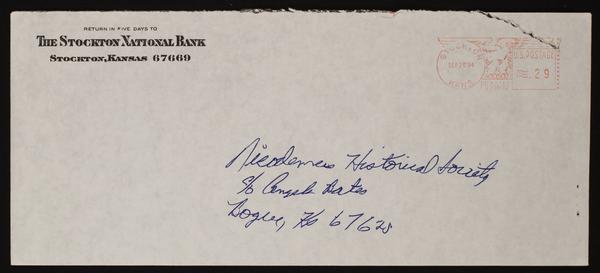 RETURN IN FIVE DAYS TO
THE STOCKTON NATIONAL BANK
STOCKTON, KANSAS 67669
STOCKTON
SEP 28 '94
KANS
U.S. POSTAGE
.29
Nicodemus Historical Society
c/o Angela Bates
Bogue, Ks 67625